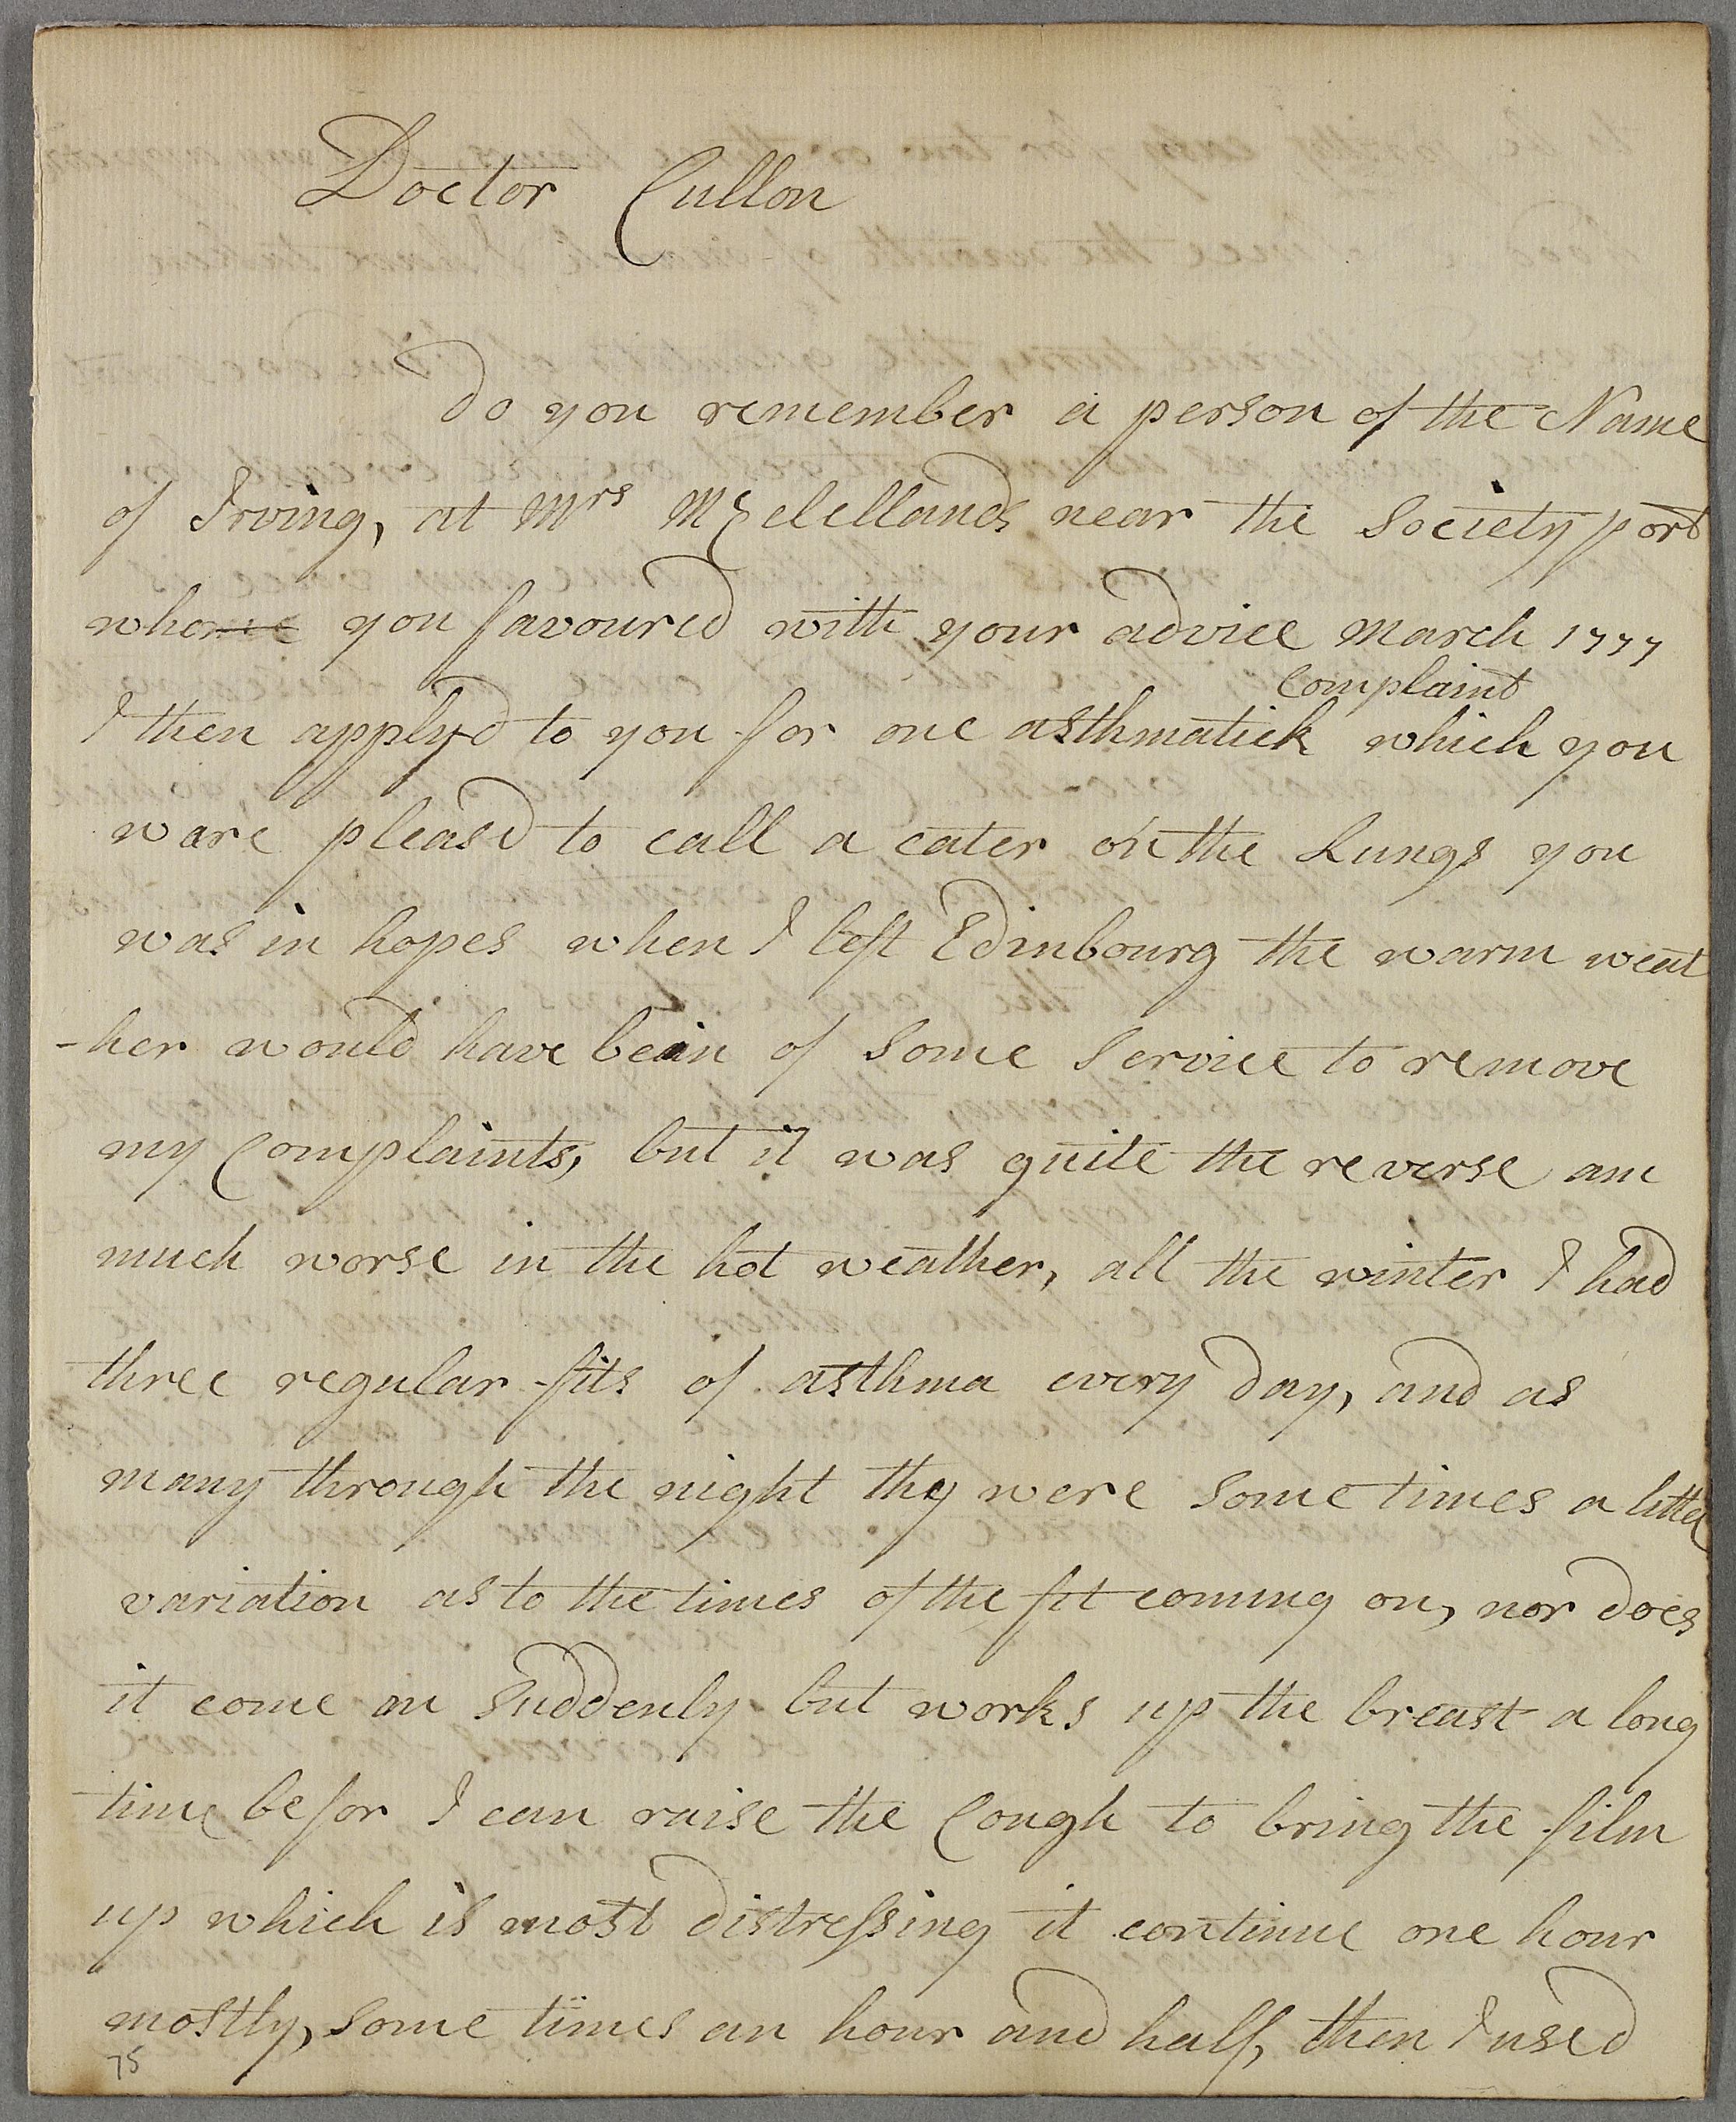 Doctor Cullon
Do you remember a person of the Name
of Irving, at Mrs McClellands near the Society port
whome you favoured with your advice March 1777
Complaint
I then applyd to you for one asthmatick which you
ware pleasd to call a cater on the Lungs you
was in hopes when I left Edinbourg the warm weat
-her would have bein of Some Service to remove
my Complaints, but it was quite the reverse am
much worse in the hot weather, all the winter I had
three regular fits of asthma every day, and as
many through the night thy were Some times a littel
variation as to the times of the fit coming on, nor does
it come on Suddenly but works up the breast a long
time befor I can raise the Cough to bring the film
up which is most distressing it continue one hour
mostly, Some times an hour and half, then I used
75